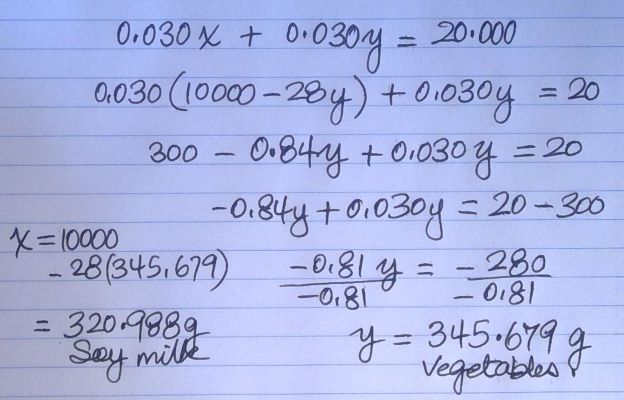 0.030x + 0.030y = 20.000
0.030(10000 - 28y) + 0.030y = 20
300 - 0.84y + 0.030y = 20
-0.84y + 0.030y = 20 - 300
x = 10000
- 28(345.679)
= 320.988g
Soy milk
-0.81y / -0.81 = -280 / -0.81
y = 345.679 g
vegetables